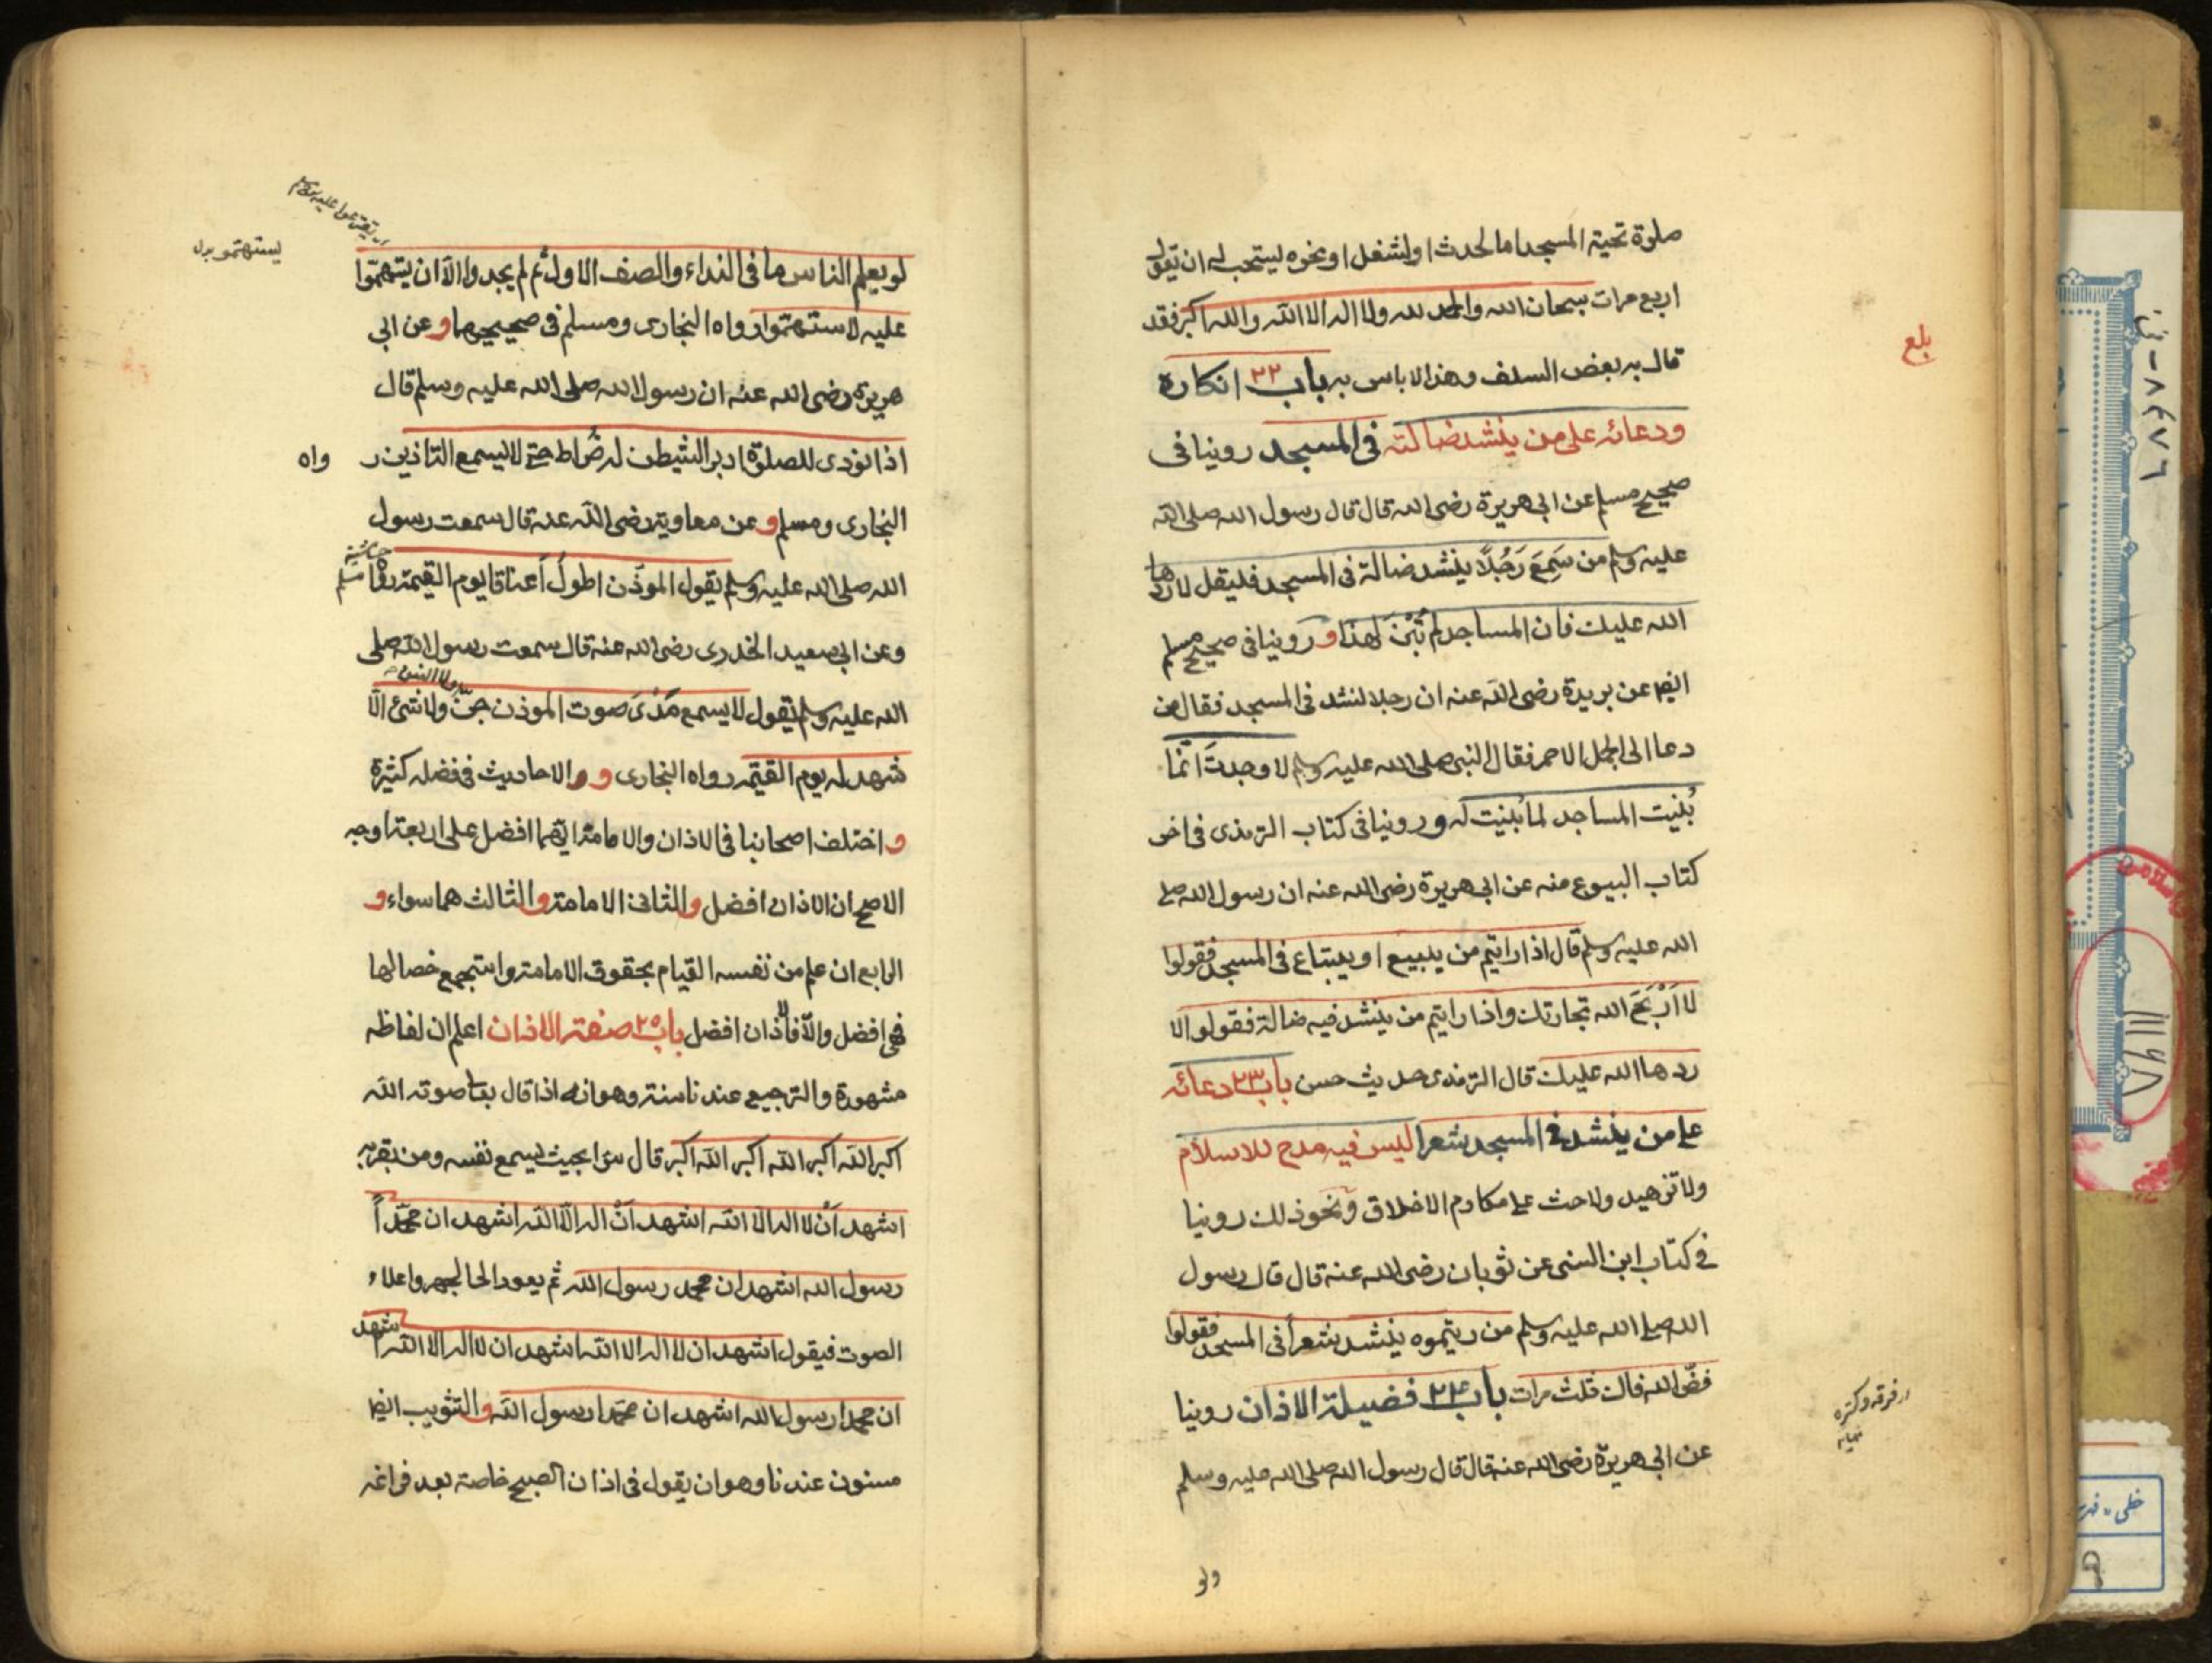 صلوة تحية المسجد اما لحدث او لشغل او نحوه يستحب له ان يقول
اربع مرات سبحان الله والحمد لله ولا اله الا الله والله اكبر فقد
قال به بعض السلف وهذا لا باس به باب ٢٢ انكاره
ودعائه على من ينشد ضالته في المسجد روينا في
صحيح مسلم عن ابي هريرة رضى الله قال قال رسول الله صلى الله
عليه وسلم من سَمِعَ رَجُلًا ينشد ضالة في المسجد فليقل لا ردها
الله عليك فان المساجد لم تُبْنَ لهذا و روينا في صحيح مسلم
ايضا عن بريدة رضى الله عنه ان رجلا نشد في المسجد فقال من
دعا الى الجمل الاحمر فقال النبي صلى الله عليه وسلم لا وجدتَ انما
بُنيت المساجد لما بُنيت له و روينا في كتاب الترمذى في اخر
كتاب البيوع منه عن ابي هريرة رضى الله عنه ان رسول الله صلى
الله عليه وسلم قال اذا رايتم من يبيع او يبتاع في المسجد فقولوا
لا اَرْبَحَ الله تجارتك واذا رايتم من ينشد فيه ضالة فقولوا لا
ردها الله عليك قال الترمذى حديث حسن باب ٢٣ دعائه
على من ينشد في المسجد شعرا ليس فيه مدح للاسلام
ولا تزهيد ولا حث على مكارم الاخلاق ونحو ذلك روينا
في كتاب ابن السنى عن ثوبان رضى الله عنه قال قال رسول
الله صلى الله عليه وسلم من رايتموه ينشد شعرًا في المسجد فقولوا
فضّ الله فاك ثلث مرات باب ٢٤ فضيلة الاذان روينا
عن ابي هريرة رضى الله عنه قال قال رسول الله صلى الله عليه وسلم
بلغ
ولو
لو يعلم الناس ما في النداء والصف الاول ثم لم يجدوا الا ان يستهموا
عليه لاستهموا رواه البخارى ومسلم في صحيحيهما و عن ابي
هريرة رضى الله عنه ان رسول الله صلى الله عليه وسلم قال
اذا نودى للصلوة ادبر الشيطن له ضُراط حتى لا يسمع التاذين ر واه
البخارى ومسلم و عن معاوية رضى الله عنه قال سمعت رسول
الله صلى الله عليه وسلم يقول الموذّن اطولُ اَعناقا يوم القيمة رواه مسلم
وعن ابي سعيد الخدرى رضى الله عنه قال سمعت رسول الله صلى
الله عليه وسلم يقول لا يسمع مَدْىَ صوت الموذن جن ولا شئ الا
شهد له يوم القيمة رواه البخارى و والاحاديث في فضله كثيرة
و اختلف اصحابنا في الاذان والامامة ايهما افضل على اربعة اوجه
الاصح ان الاذان افضل والثاني الامامة والثالث هما سواء و
الرابع ان علم من نفسه القيام بحقوق الامامة واستجمع خصالها
فهى افضل والّا فالاذان افضل باب ٢٥ صفة الاذان اعلم ان الفاظه
مشهورة والترجيع عندنا سنة وهو انه اذا قال بعا صوته الله
اكبر الله اكبر الله اكبر الله اكبر قال سرا بحيث يسمع نفسه ومن بقربه
اشهد اَنْ لا اله الا الله اشهد اَنْ اله الّا الله اشهد ان محمّداً
رسول الله اشهد ان محمد رسول الله ثم يعود الى الجهر واعلاء
الصوت فيقول اشهد ان لا اله الا الله اشهد ان لا اله الا الله اشهد
ان محمدا رسول الله اشهد ان محمدا رسول الله والتثويب ايضا
مسنون عندنا وهو ان يقول في اذان الصبح خاصة بعد فراغه